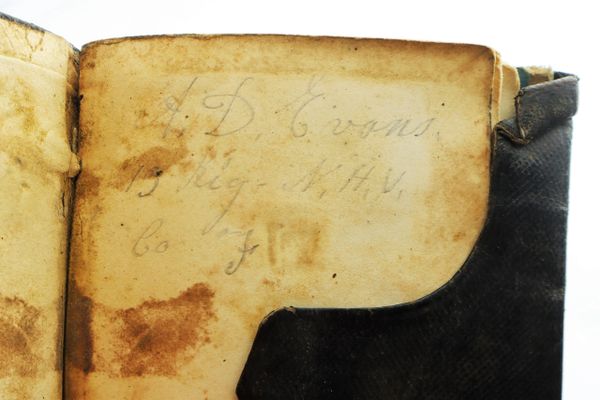 D. Evans.
13 Reg - N. H. V.
Co "F"